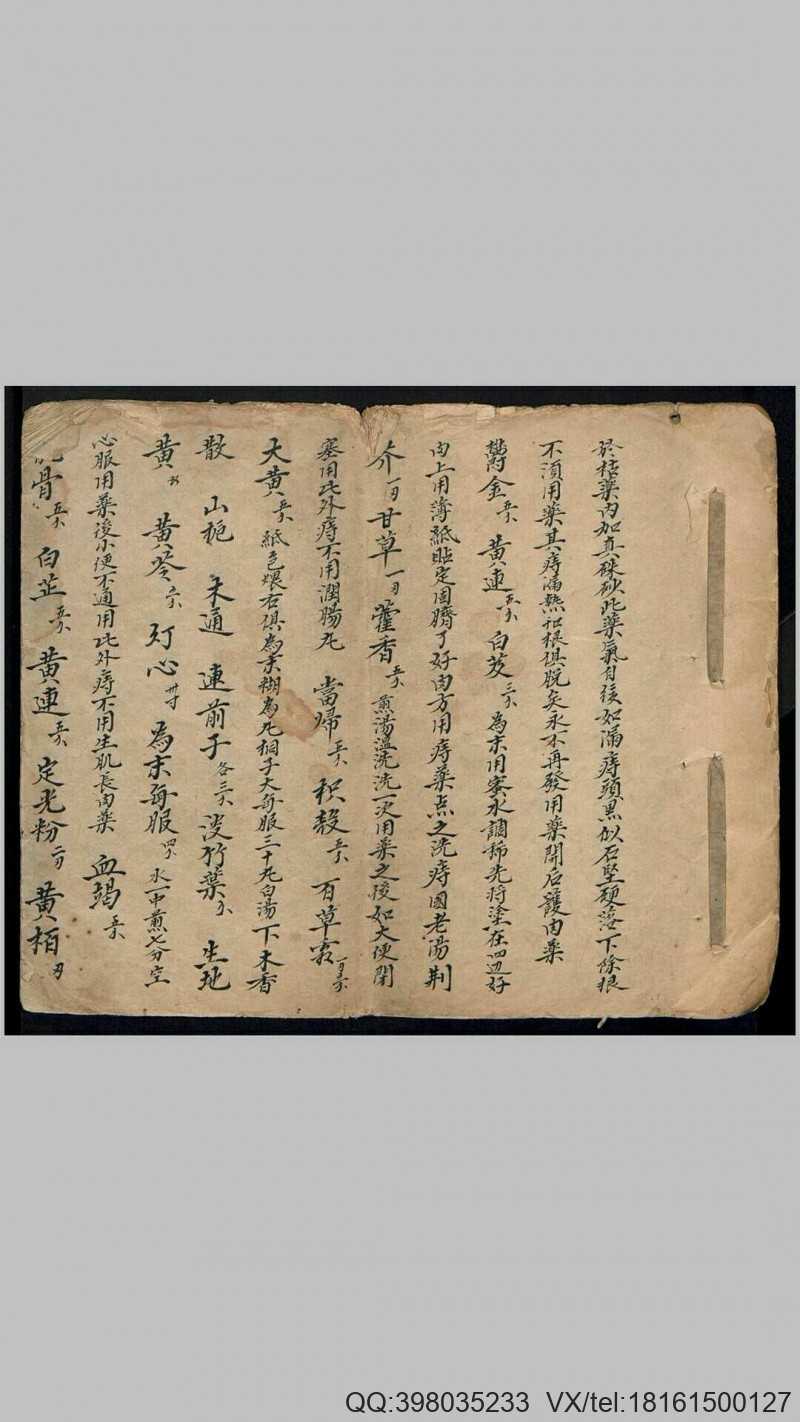 於枯藥內加真硃砂此藥氣自後如漏痔頭黑似石堅硬落下餘根
不須用藥其痔漏熱和根俱脫矣永不再發用藥開后護肉藥
鬱金 黃連 白芨 為末用蜜水調稀先將塗在四边好
肉上用薄紙貼定周臍了好肉方用痔藥点之洗痔國老湯荆
介 甘草 藿香 煎湯溫洗洗一次用藥之後如大便閉
塞用此外痔不用潤腸丸 當歸 枳殼 百草霜
大黃 紙包煨右俱為末糊為丸桐子大每服三十丸白湯下木香
散 山梔 木通 連前子各 淡竹葉 生地
黃 黃芩 灯心 為末每服 水一中煎七分空
心服用藥後小便不通用此外痔不用生肌長肉藥 血竭
骨 白芷 黃連 定光粉 黃栢
QQ:398035233 VX/tel:18161500127